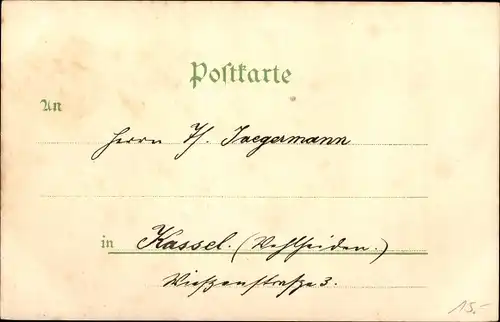 Postkarte
An
Herrn Th. Jaegermann
in Kassel. (Wehlheiden.)
3.
15.-